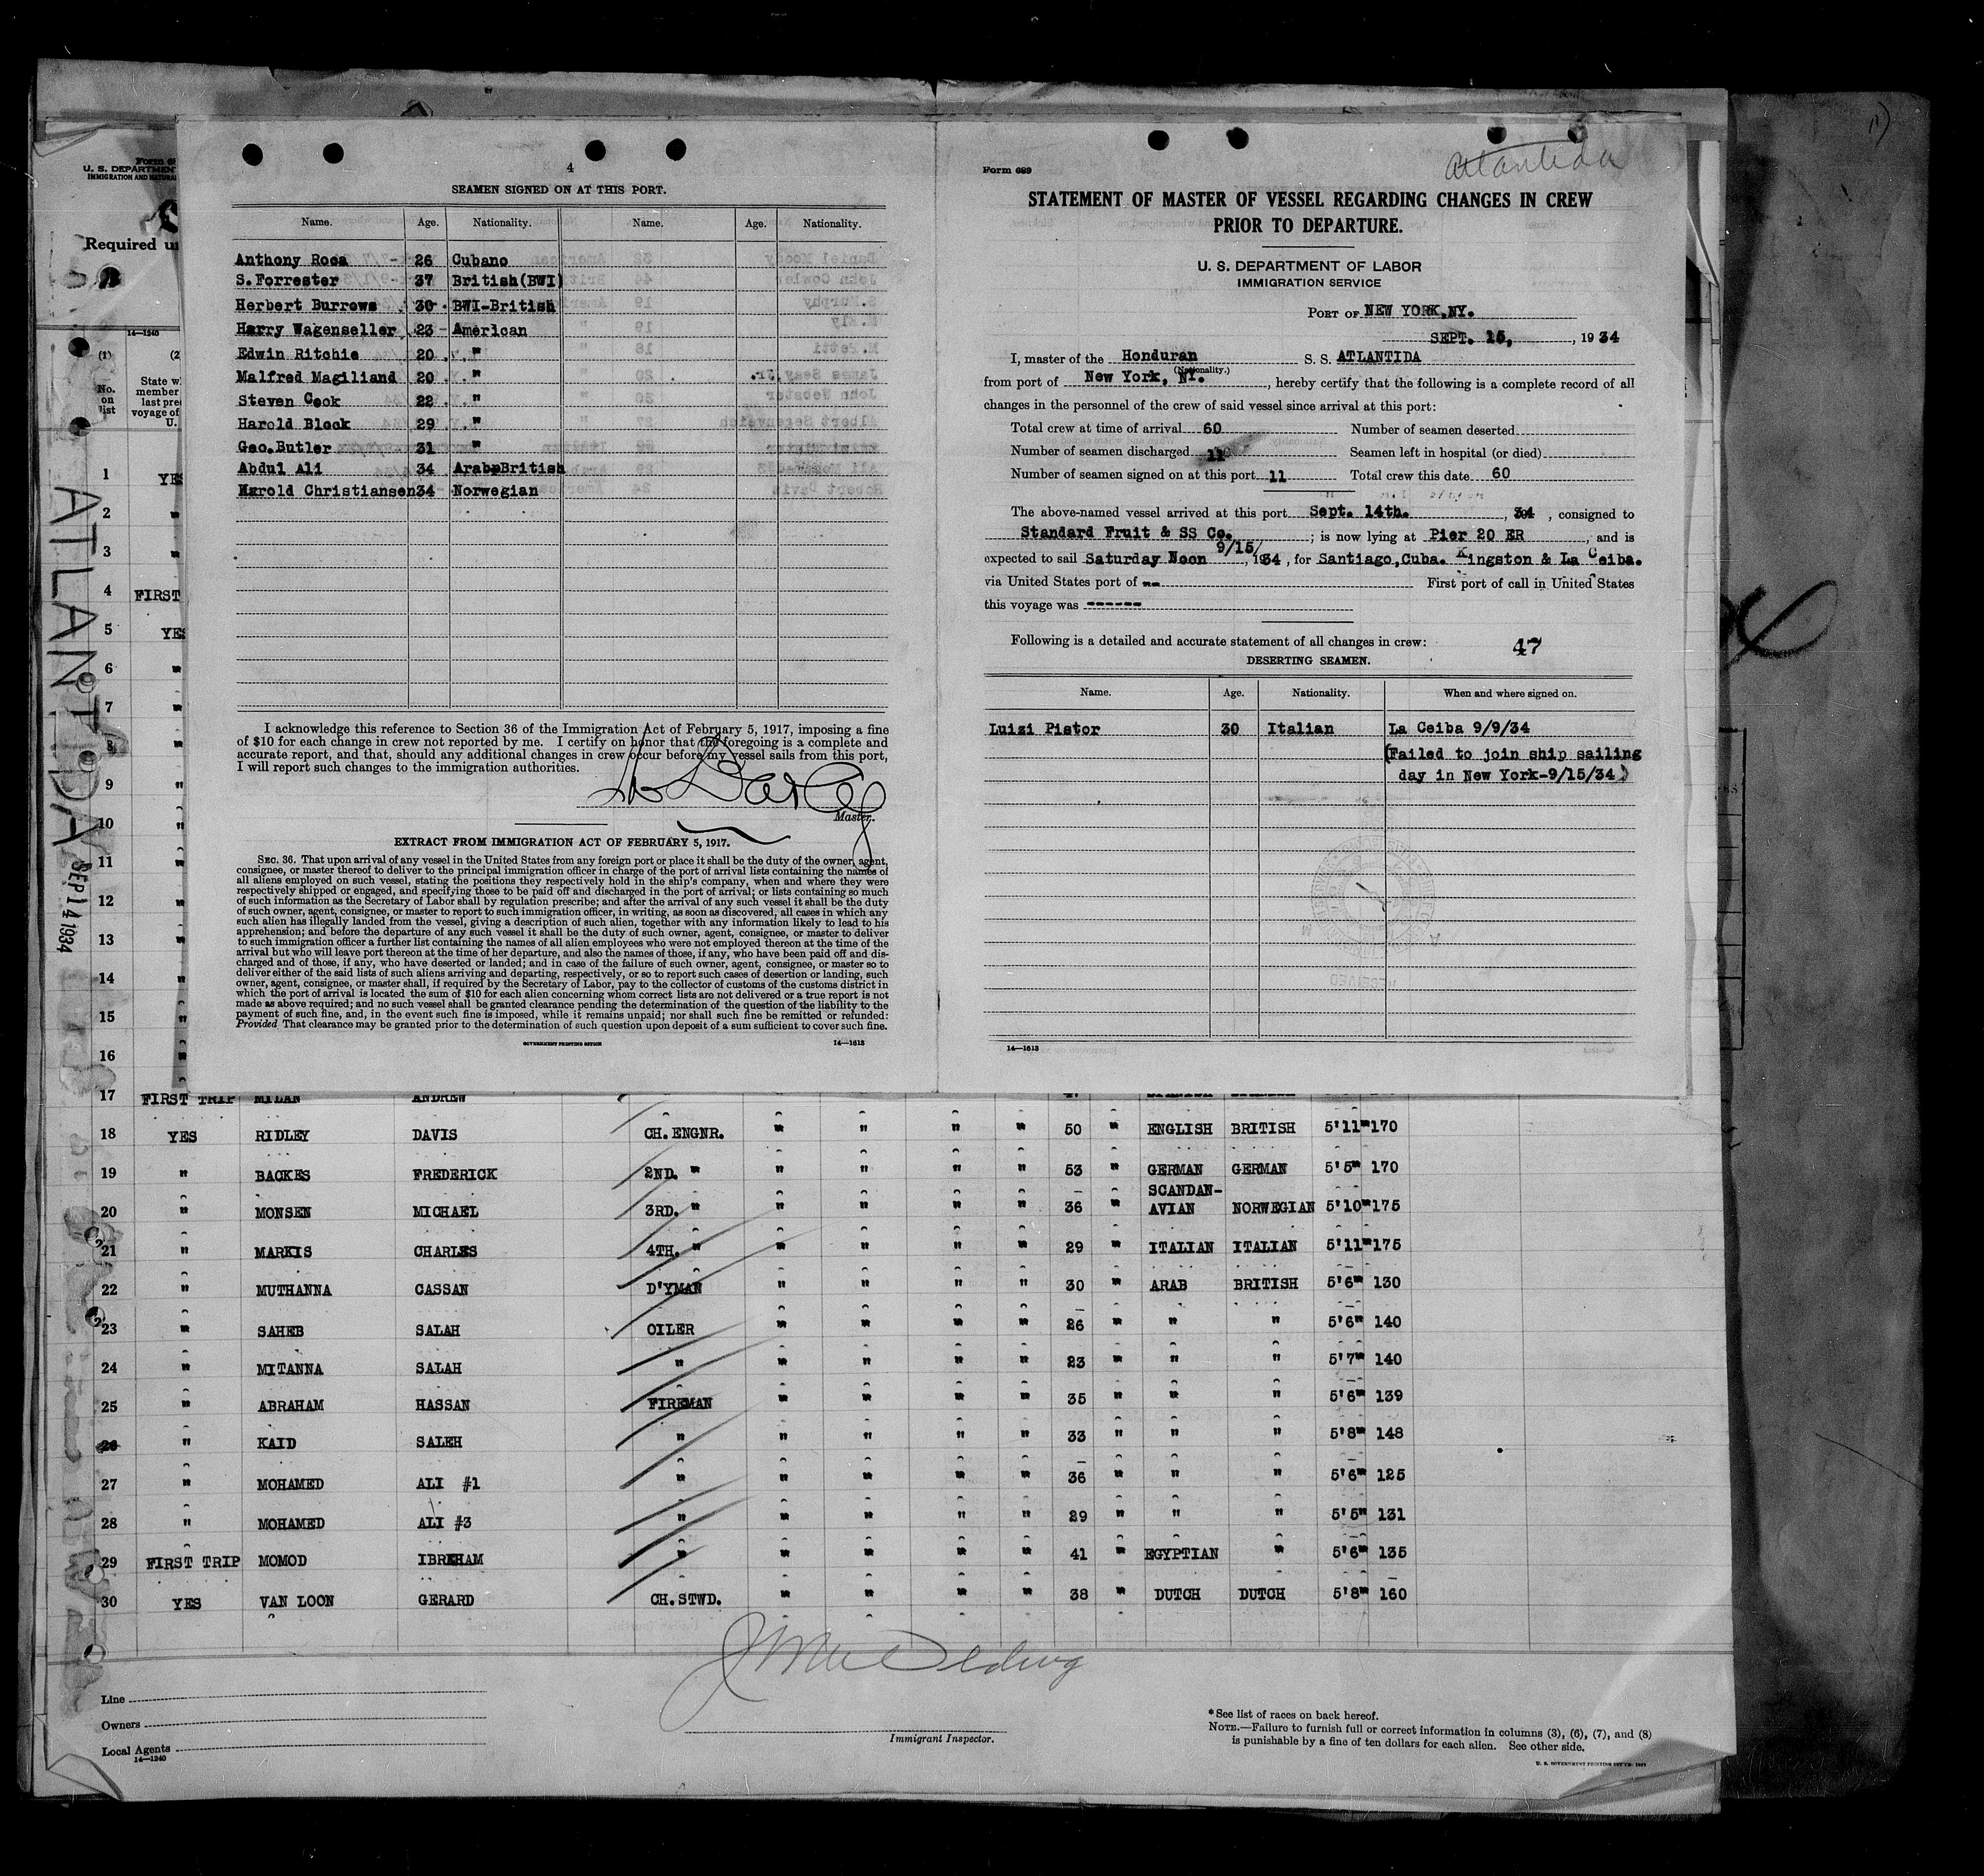 4
SEAMEN SIGNED ON AT THIS PORT.
Name. Age. Nationality. Name. Age. Nationality.
Anthony Roca 26 Cubano
S.Forrester 37 British(BWI)
Herbert Burrows 30 BWI-British
Harry Wagenseller 23 American
Edwin Ritchie 20 "
Malfred Magiliand 20 "
Steven Cook 22 "
Harold Block 29 "
Geo.Butler 31 "
Abdul Ali 34 Arab British
Harold Christiansen 34 Norwegian
I acknowledge this reference to Section 36 of the Immigration Act of February 5, 1917, imposing a fine
of $10 for each change in crew not reported by me. I certify on honor that the foregoing is a complete and
accurate report, and that, should any additional changes in crew occur before my vessel sails from this port,
I will report such changes to the immigration authorities.
Master.
EXTRACT FROM IMMIGRATION ACT OF FEBRUARY 5, 1917.
SEC. 36. That upon arrival of any vessel in the United States from any foreign port or place it shall be the duty of the owner, agent,
consignee, or master thereof to deliver to the principal immigration officer in charge of the port of arrival lists containing the names of
all aliens employed on such vessel, stating the positions they respectively hold in the ship's company, when and where they were
respectively shipped or engaged, and specifying those to be paid off and discharged in the port of arrival; or lists containing so much
of such information as the Secretary of Labor shall by regulation prescribe; and after the arrival of any such vessel it shall be the duty
of such owner, agent, consignee, or master to report to such immigration officer, in writing, as soon as discovered, all cases in which any
such alien has illegally landed from the vessel, giving a description of such alien, together with any information likely to lead to his
apprehension; and before the departure of any such vessel it shall be the duty of such owner, agent, consignee, or master to deliver
to such immigration officer a further list containing the names of all alien employees who were not employed thereon at the time of the
arrival but who will leave port thereon at the time of her departure, and also the names of those, if any, who have been paid off and dis-
charged and of those, if any, who have deserted or landed; and in case of the failure of such owner, agent, consignee, or master so to
deliver either of the said lists of such aliens arriving and departing, respectively, or so to report such cases of desertion or landing, such
owner, agent, consignee, or master shall, if required by the Secretary of Labor, pay to the collector of customs of the customs district in
which the port of arrival is located the sum of $10 for each alien concerning whom correct lists are not delivered or a true report is not
made as above required; and no such vessel shall be granted clearance pending the determination of the question of the liability to the
payment of such fine, and, in the event such fine is imposed, while it remains unpaid; nor shall such fine be remitted or refunded:
Provided That clearance may be granted prior to the determination of such question upon deposit of a sum sufficient to cover such fine.
GOVERNMENT PRINTING OFFICE 14—1613
Atlantida
Form 689
STATEMENT OF MASTER OF VESSEL REGARDING CHANGES IN CREW
PRIOR TO DEPARTURE.
U. S. DEPARTMENT OF LABOR
IMMIGRATION SERVICE
PORT OF NEW YORK,NY.
SEPT. 15, , 1934
I, master of the Honduran S. S. ATLANTIDA
(Nationality.)
from port of New York, NY. , hereby certify that the following is a complete record of all
changes in the personnel of the crew of said vessel since arrival at this port:
Total crew at time of arrival 60 Number of seamen deserted
Number of seamen discharged 11 Seamen left in hospital (or died)
Number of seamen signed on at this port 11 Total crew this date 60
The above-named vessel arrived at this port Sept. 14th. , 34 , consigned to
Standard Fruit & SS Co. ; is now lying at Pier 20 ER , and is
expected to sail Saturday Noon 9/15/ , 1934 , for Santiago,Cuba. Kingston & La Ceiba.
via United States port of -- First port of call in United States
this voyage was ------
Following is a detailed and accurate statement of all changes in crew: 47
DESERTING SEAMEN.
Name. Age. Nationality. When and where signed on.
Luizi Pistor 30 Italian La Ceiba 9/9/34
(Failed to join ship sailing
day in New York-9/15/34)
14—1613
Form 68
U. S. DEPARTMENT
IMMIGRATION AND NATURA
Required u
14—1240
(1) (2
No. on list
State w
member
last pre
voyage of
U.
ATLANTIDA
SEP 14 1934
1 YES
2 "
3 "
4 FIRST
5 YES
6 "
7 "
8 "
9 "
10 "
11 "
12 "
13 "
14 "
15 "
16 "
17 FIRST TRIP MILAN ANDREW
18 YES RIDLEY DAVIS CH.ENGNR. " " " " 50 " ENGLISH BRITISH 5'11" 170
19 " BACKES FREDERICK 2ND. " " " " " 53 " GERMAN GERMAN 5'5" 170
20 " MONSEN MICHAEL 3RD. " " " " " 36 " SCANDAN-AVIAN NORWEGIAN 5'10" 175
21 " MARKIS CHARLES 4TH. " " " " " 29 " ITALIAN ITALIAN 5'11" 175
22 " MUTHANNA CASSAN D'YMAN " " " " 30 " ARAB BRITISH 5'6" 130
23 " SAHEB SALAH OILER " " " " 26 " " " 5'6" 140
24 " MITANNA SALAH " " " " " 23 " " " 5'7" 140
25 " ABRAHAM HASSAN FIREMAN " " " " 35 " " " 5'6" 139
26 " KAID SALEH " " " " " 33 " " " 5'8" 148
27 " MOHAMED ALI #1 " " " " " 36 " " " 5'6" 125
28 " MOHAMED ALI #3 " " " " " 29 " " " 5'5" 131
29 FIRST TRIP MOMOD IBREHAM " " " " " 41 " EGYPTIAN " 5'6" 135
30 YES VAN LOON GERARD CH.STWD. " " " " 38 " DUTCH DUTCH 5'8" 160
Line
Owners
Local Agents
14—1240
Immigrant Inspector.
*See list of races on back hereof.
NOTE.—Failure to furnish full or correct information in columns (3), (6), (7), and (8)
is punishable by a fine of ten dollars for each alien. See other side.